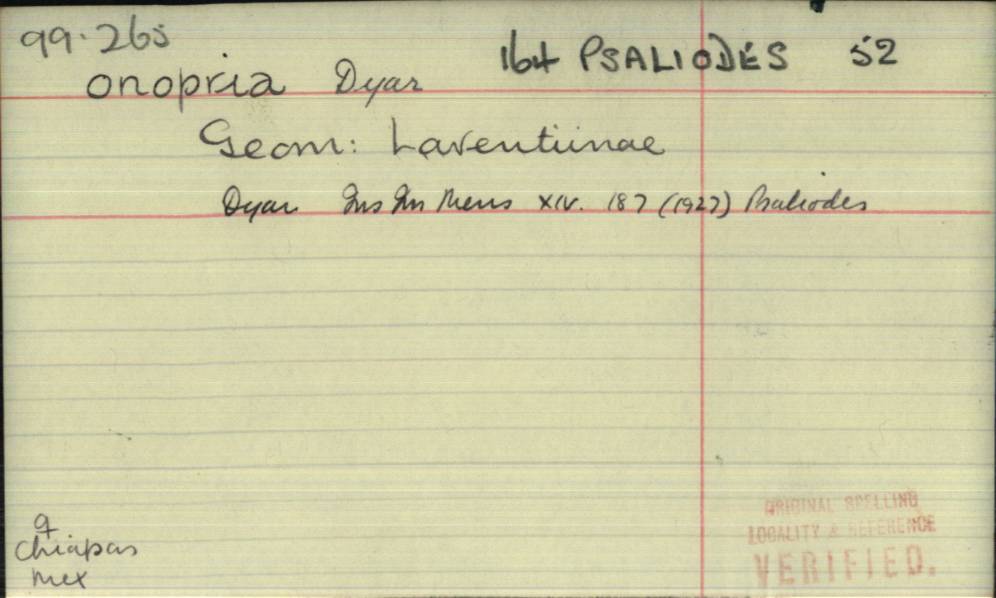 99.265
164 PSALIODES 52
onopria Dyar
Geom: Larentiinae
Dyar Ins Ins Mens XIV. 187 (1927) Psaliodes
♀
Chiapas
Mex
ORIGINAL SPELLING
LOCALITY & REFERENCE
VERIFIED.